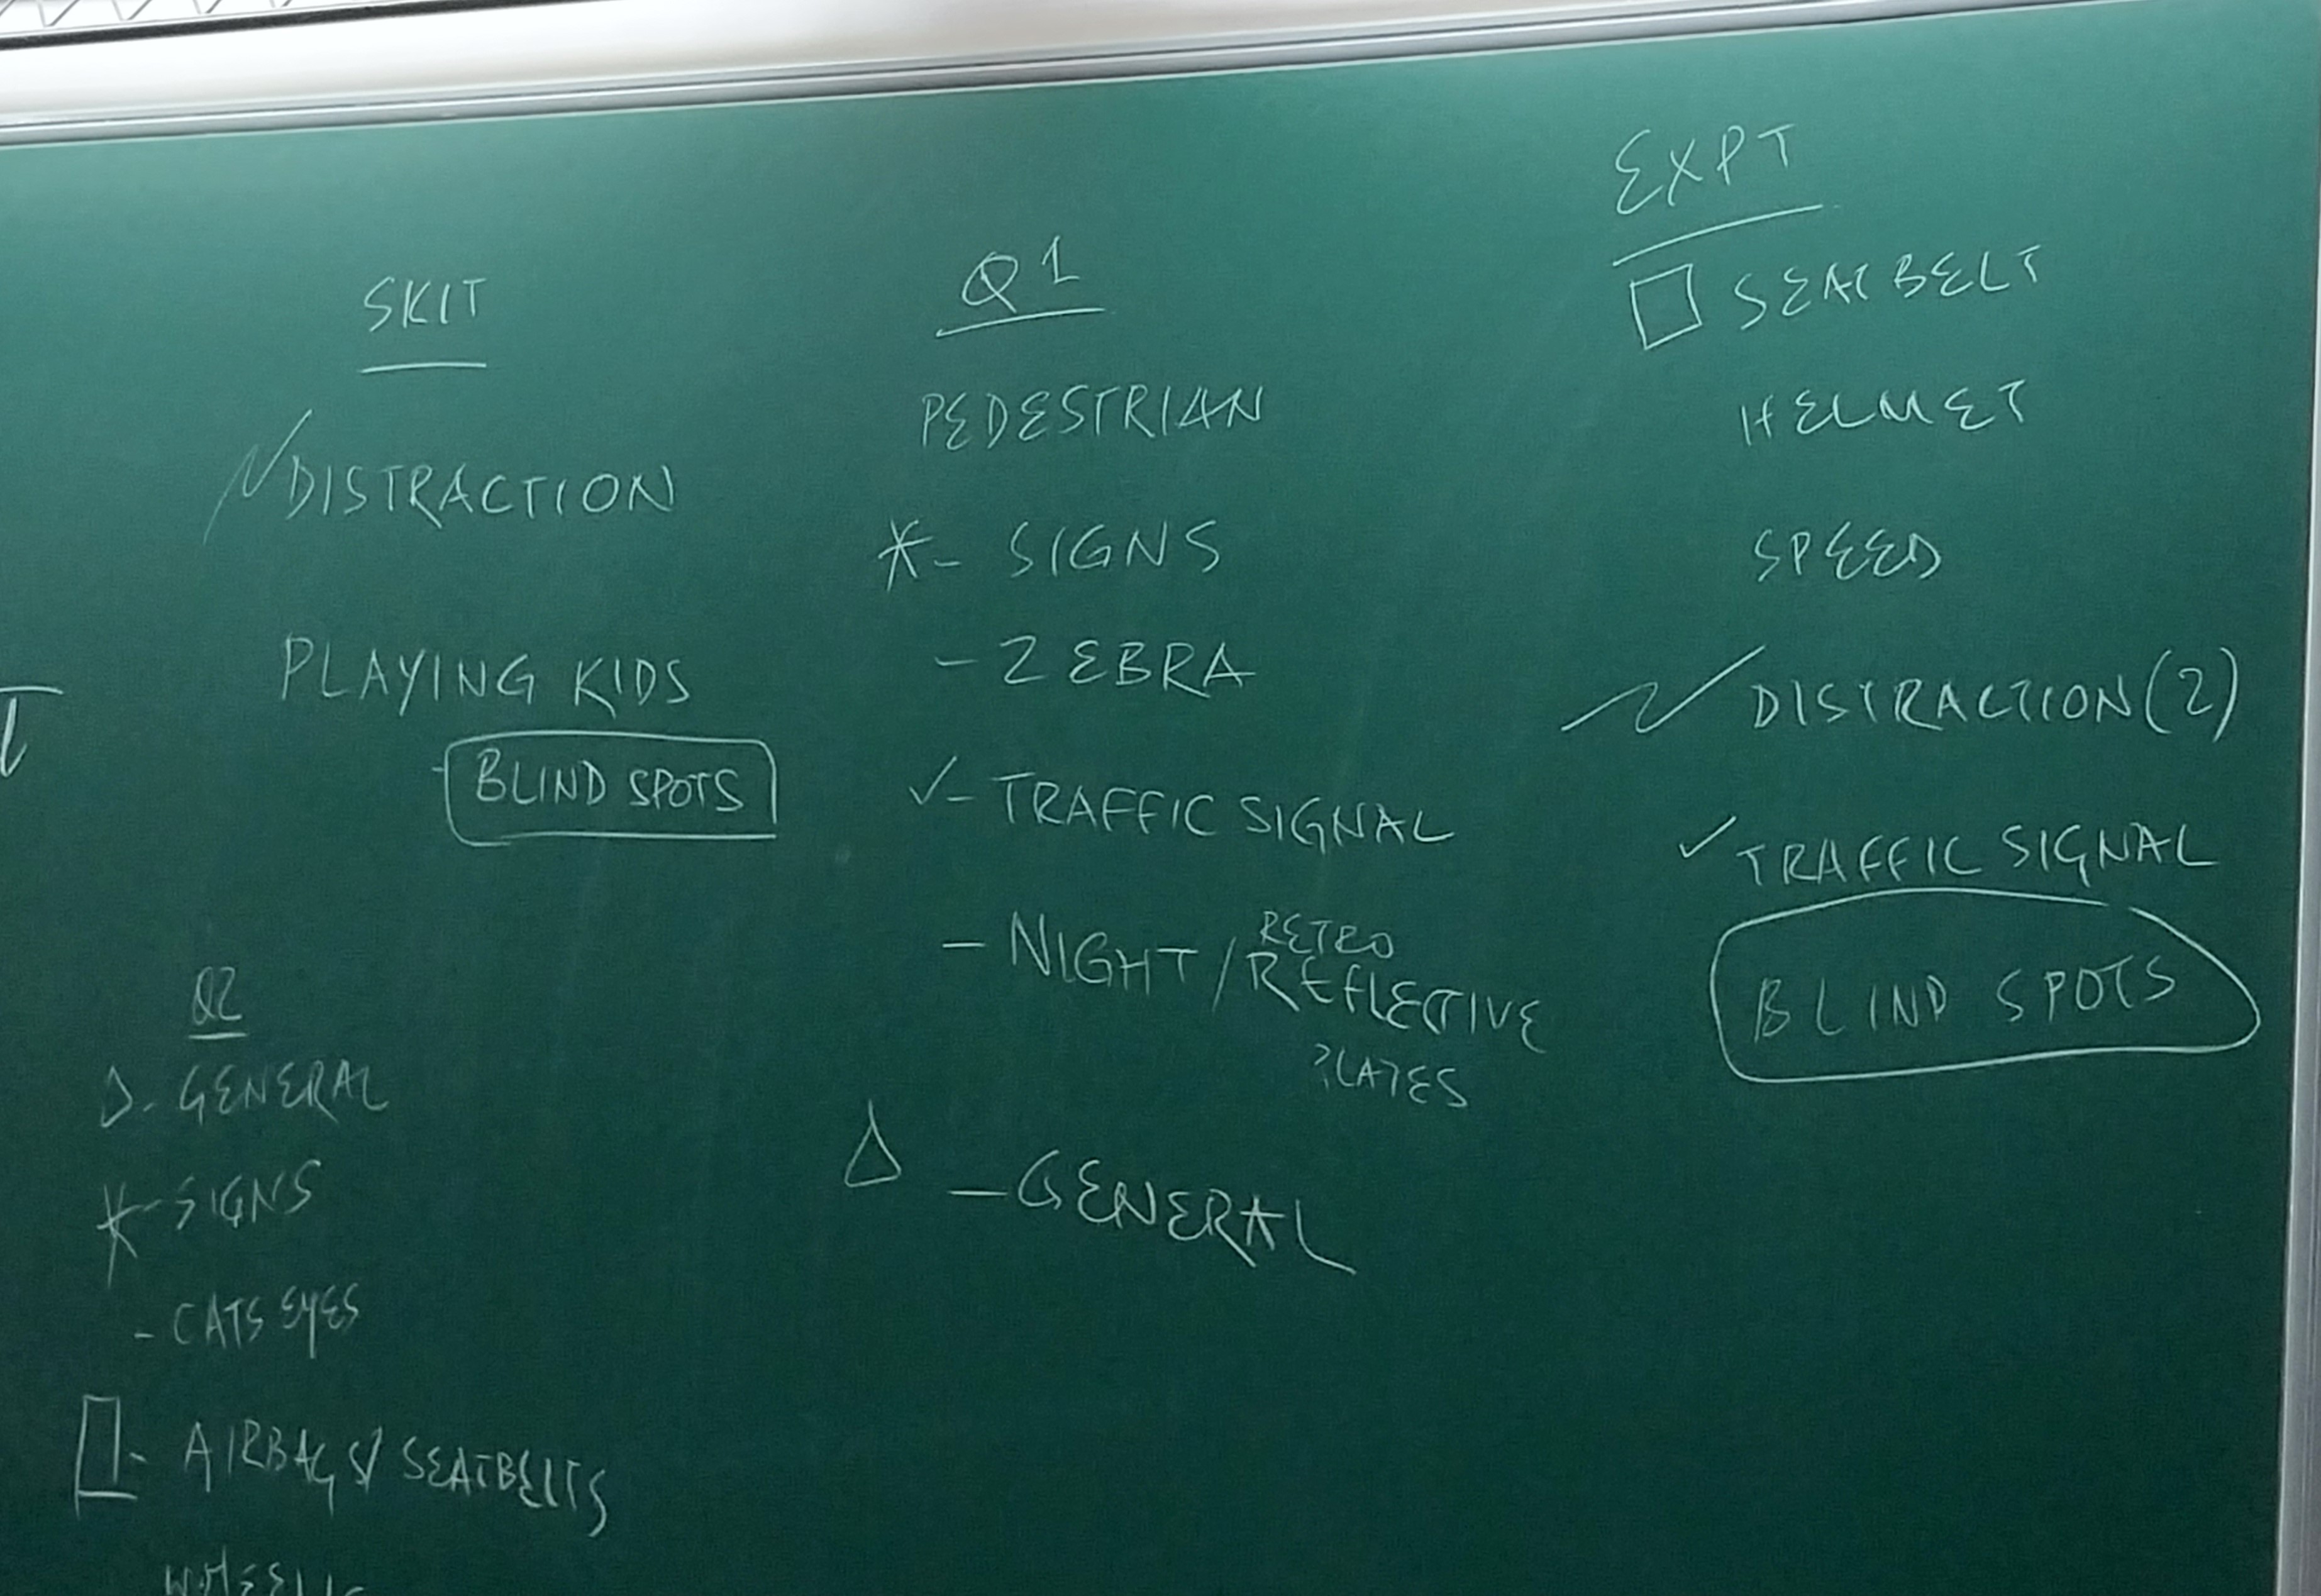 SKIT
DISTRACTION
PLAYING KIDS
BLIND SPOTS
Q1
PEDESTRIAN
*- SIGNS
- ZEBRA
✓- TRAFFIC SIGNAL
- NIGHT / RETRO
REFLECTIVE
PLATES
△ - GENERAL
EXPT
SEATBELT
HELMET
SPEED
DISTRACTION (2)
✓ TRAFFIC SIGNAL
BLIND SPOTS
Q2
△ - GENERAL
*- SIGNS
- CATS EYES
- AIRBAGS/ SEATBELTS